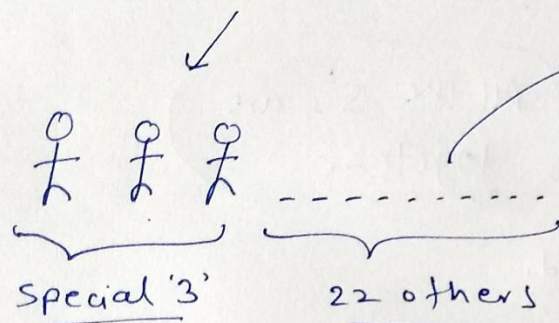 special '3'
22 others